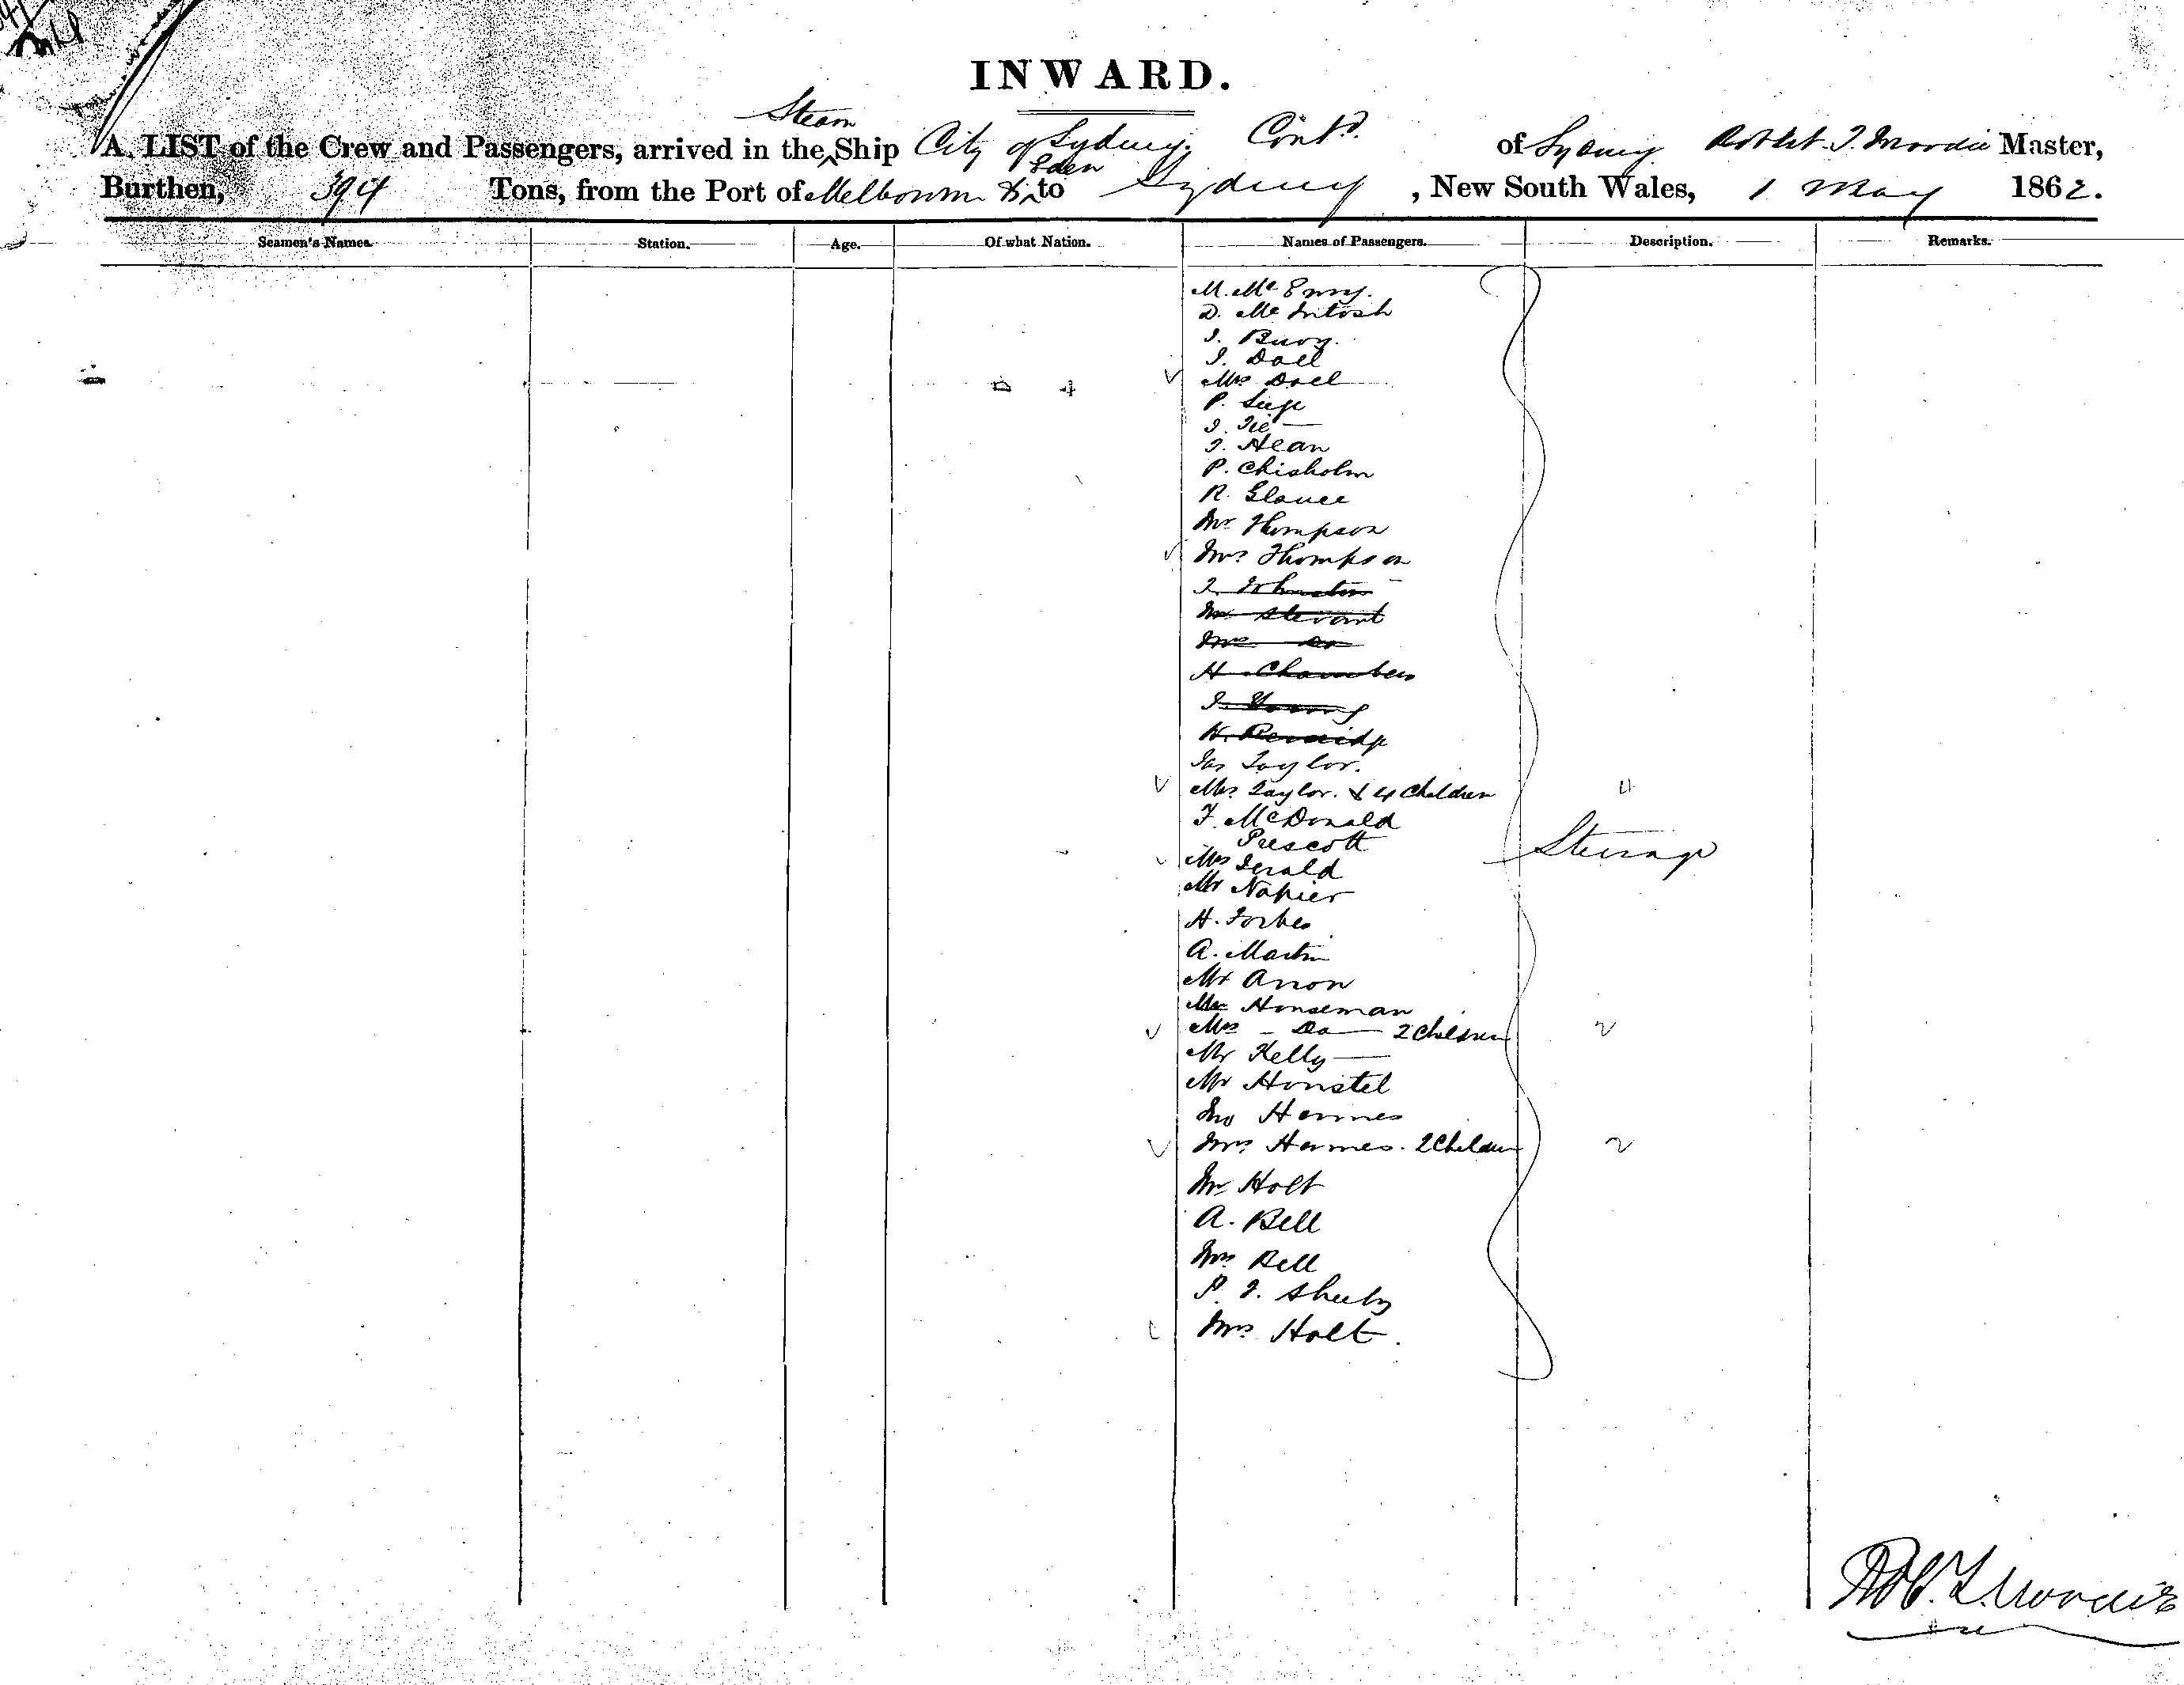 INWARD.
Steam
A LIST of the Crew and Passengers, arrived in the Ship City of Sydney. Contd. of Sydney Robert T. Moodie Master,
Eden
Burthen, 394 Tons, from the Port of Melbourne & to Sydney, New South Wales, 1 May 1862.
Seamen's Names. Station. Age. Of what Nation. Names of Passengers. Description. Remarks.
M. Mc
D. McIntosh
J.
J. Doel
Mrs Doel
P.
J.
J. Hean
P. Chisholm
R. Glance
Mr Thompson
Mrs Thompson
J. Johnston
Mr Stewart
Mrs Do
H. Chambers
J. Young
H.
Jas Taylor.
Mrs Taylor. & 4 Children 4
F. McDonald
Prescott
Steerage
Mrs Gerald
Mr Napier
H. Forbes
A. Martin
Mr Anon
Mr Honseman
Mrs - Do - 2 Children 2
Mr Kelly
Mr Honstel
Jno Harmes
Mrs Harmes. 2 Children 2
Mr Holt
A. Bell
Mrs Bell
P. J. Sheehy
Mrs Holt.
Robt. T. Moodie